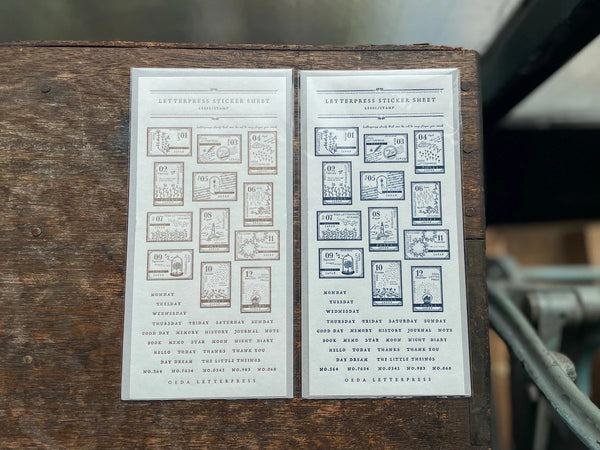 LETTERPRESS STICKER SHEET
LSS01/STAMP
01
03
04
02
05
06
07
08
11
09
10
12
JAPAN
MONDAY
TUESDAY
WEDNESDAY
THURSDAY TRIDAY SATURDAY SUNDAY
GOOD DAY MEMORY HISTORY JOURNAL NOTE
BOOK MEMO STAR MOON NIGHT DIARY
HELLO TODAY THANKS THANK YOU
DAY DREAM THE LITTLE THINGS
NO.564 NO.7634 NO.0341 NO.983 NO.068
OEDA LETTERPRESS
LETTERPRESS STICKER SHEET
LSS01/STAMP
01
03
04
02
05
06
07
08
11
09
10
12
JAPAN
MONDAY
TUESDAY
WEDNESDAY
THURSDAY TRIDAY SATURDAY SUNDAY
GOOD DAY MEMORY HISTORY JOURNAL NOTE
BOOK MEMO STAR MOON NIGHT DIARY
HELLO TODAY THANKS THANK YOU
DAY DREAM THE LITTLE THINGS
NO.564 NO.7634 NO.0341 NO.983 NO.068
OEDA LETTERPRESS